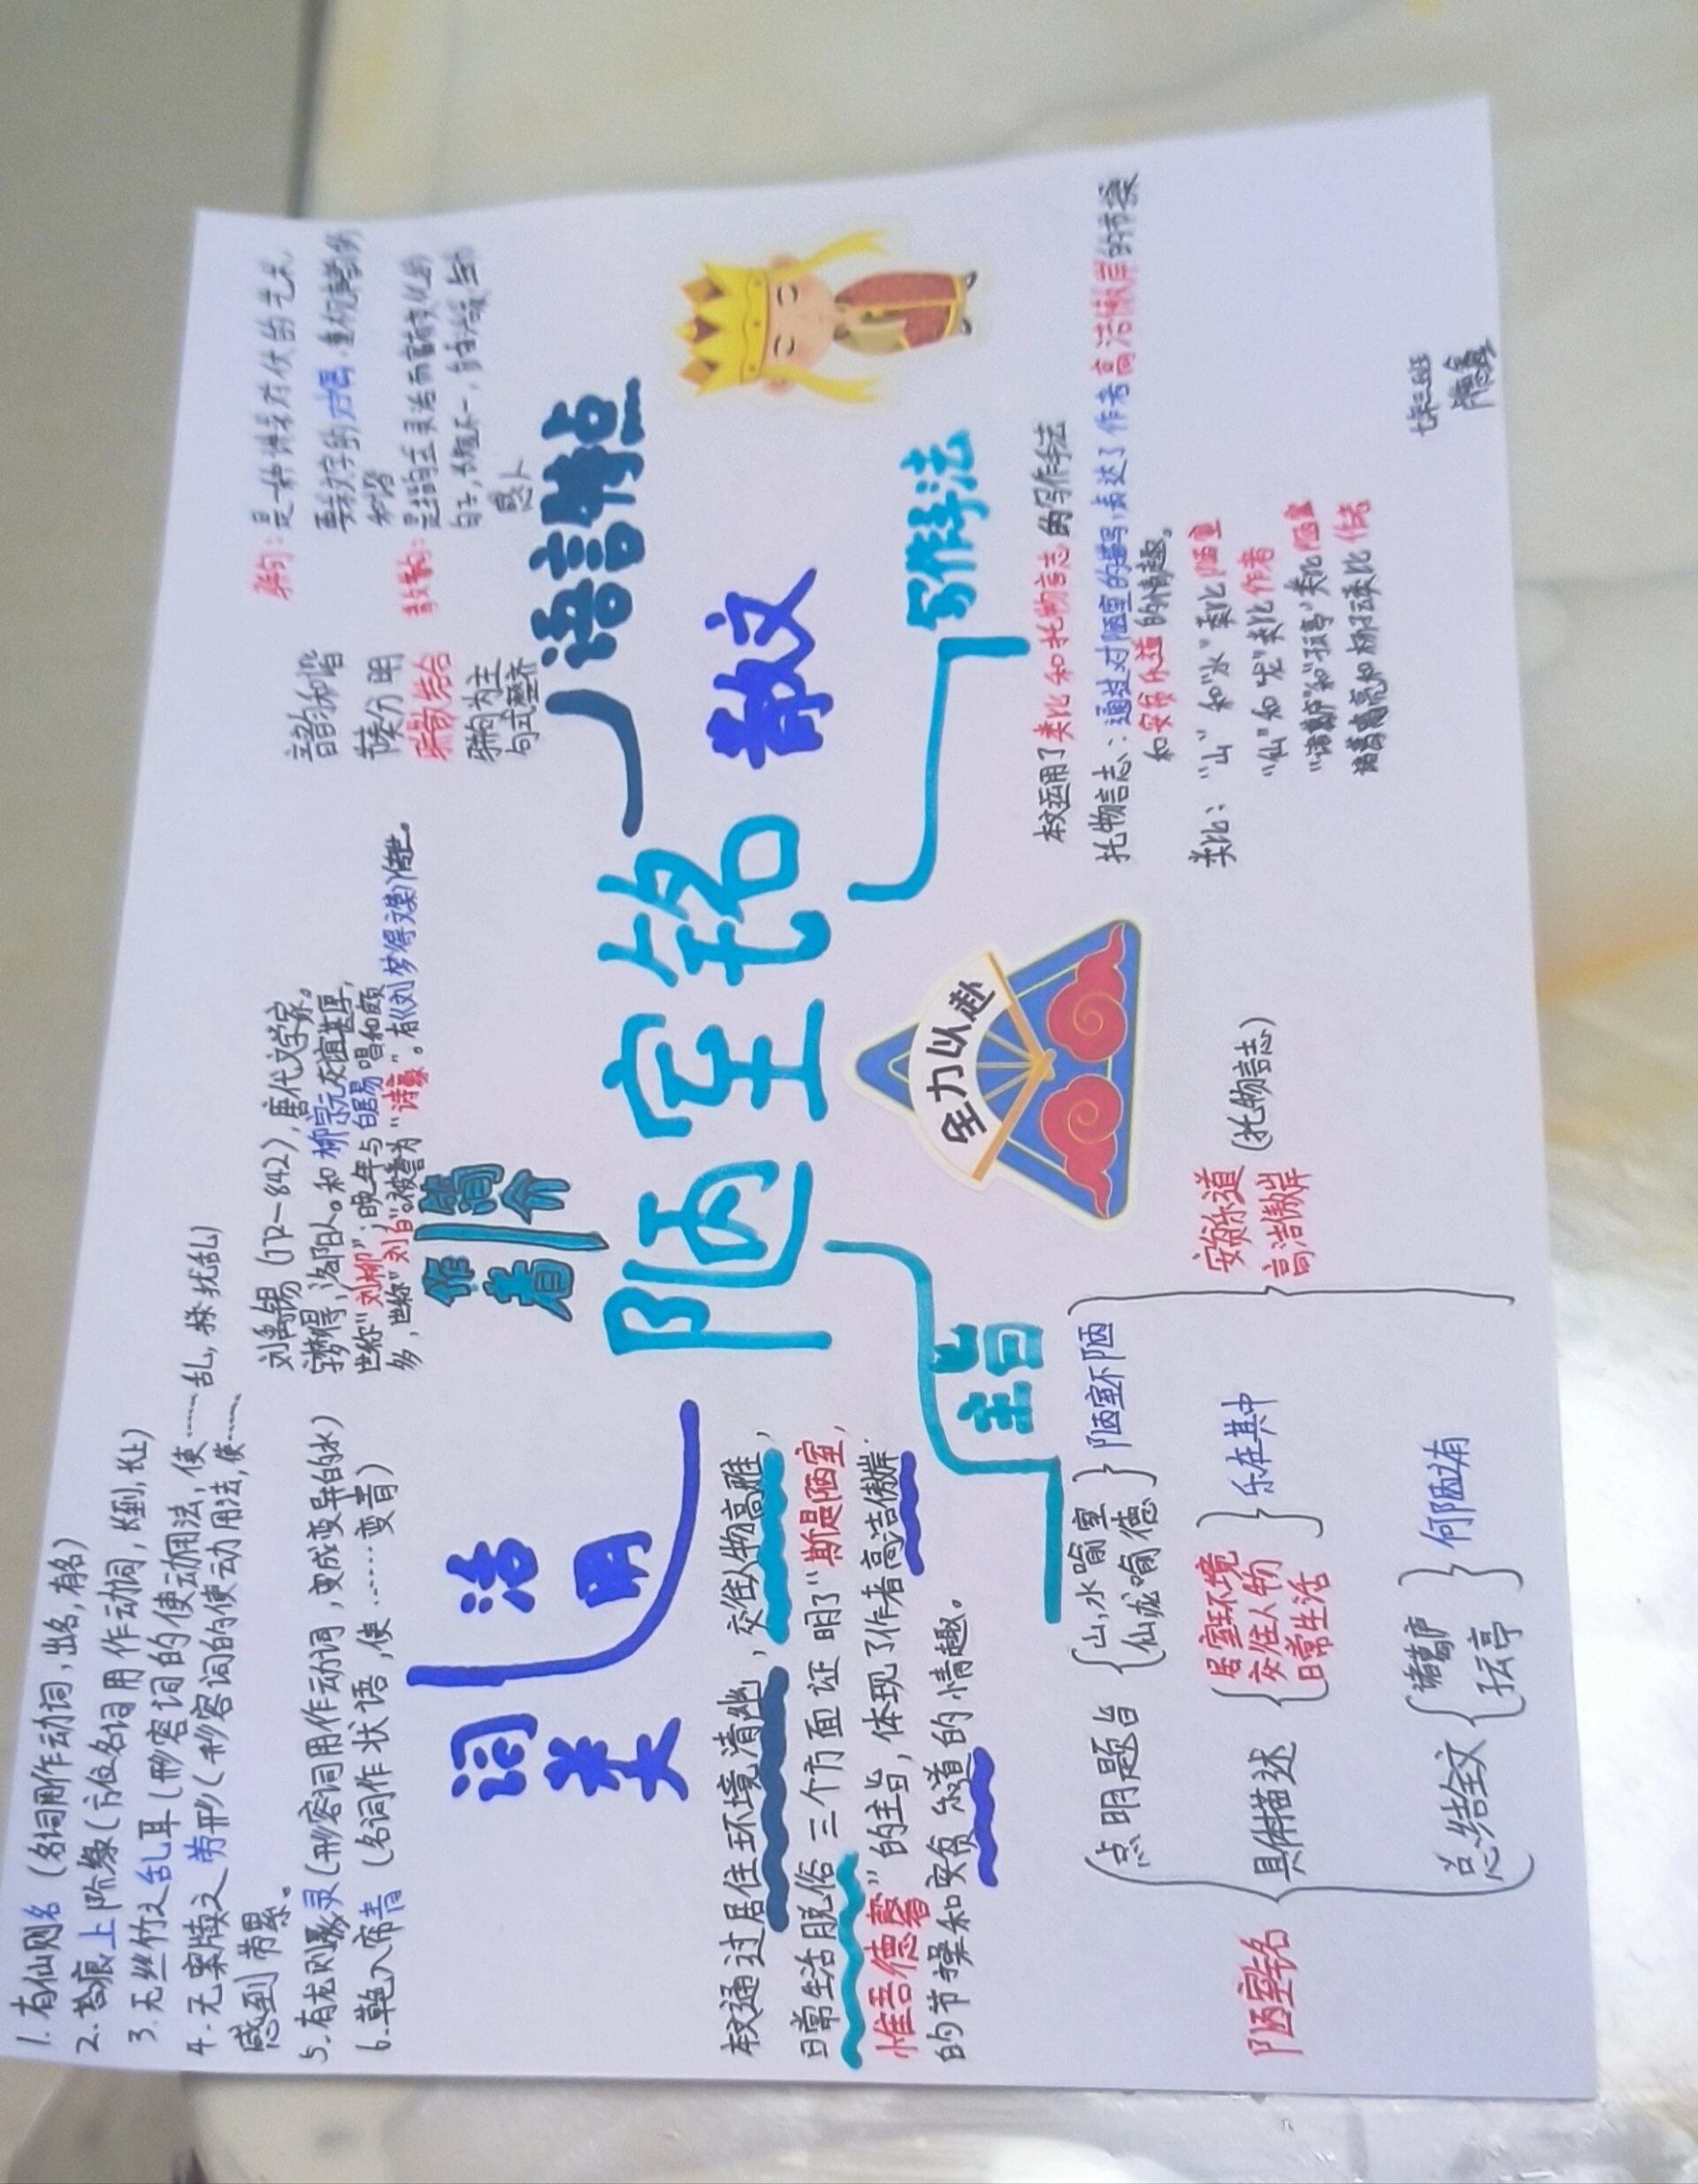 1.有仙则名（名词用作动词,出名,有名）
2.苔痕上阶绿（方位名词用作动词,长到,长上）
3.无丝竹之乱耳（形容词的使动用法,使……乱,扰乱）
4.无案牍之劳形（形容词的使动用法,使……
感到劳累。
5.有龙则灵（形容词用作动词,变成变异的水）
6.草色入帘青（名词作状语,使……变青）
词类
活用
刘禹锡（772-842）,唐代文学家。
字梦得,洛阳人。和柳宗元交谊甚厚,
世称“刘柳”;晚年与白居易唱和颇
多,世称“刘白”。被誉为“诗豪”。有《刘梦得文集》传世。
作者
简介
音韵和谐
骈散结合
骈句为主
句式整齐
骈句:是一种讲求对仗的艺术
要求文字的对偶,重视声韵的
和谐
散句:
感人
语言特点
陋室铭
散文
全力以赴
本文通过居住环境清幽,交往人物高雅,
日常生活脱俗三个方面证明了“斯是陋室,
惟吾德馨”的主旨,体现了作者高洁傲岸
的节操和安贫乐道的情趣。
主旨
陋室铭
点明题旨
山,水喻室
仙龙喻德
陋室不陋
具体描述
居室环境
交往人物
日常生活
乐在其中
总结全文
诸葛庐
子云亭
何陋之有
安贫乐道
高洁傲岸
（托物言志）
写作手法
本文运用了类比和托物言志的写作手法
托物言志:通过对陋室的描写,表达了作者高洁傲岸的节操
和安贫乐道的情趣。
类比:“山”和“水”类比陋室
“仙”和“龙”类比作者
“诸葛庐”和“子云亭”类比陋室
诸葛亮和杨子云类比作者
七年三班